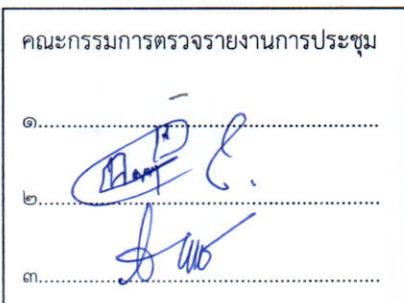 คณะกรรมการตรวจรายงานการประชุม
๑.....................................................
๒.....................................................
๓.....................................................